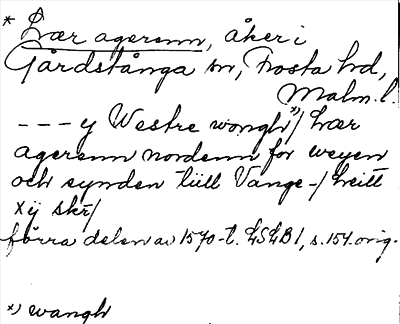 * Twær agerenn, åker i
Gårdstånga sn, Frosta hd,
Malm. l.
--- y Westre wongh *)/ twær
agerenn nordenn for weyen
och synden tiill Vange-/ hviitt
xij skr/
förra delen av 1570-t. LSLB 1, s. 154. orig.
*) wangh